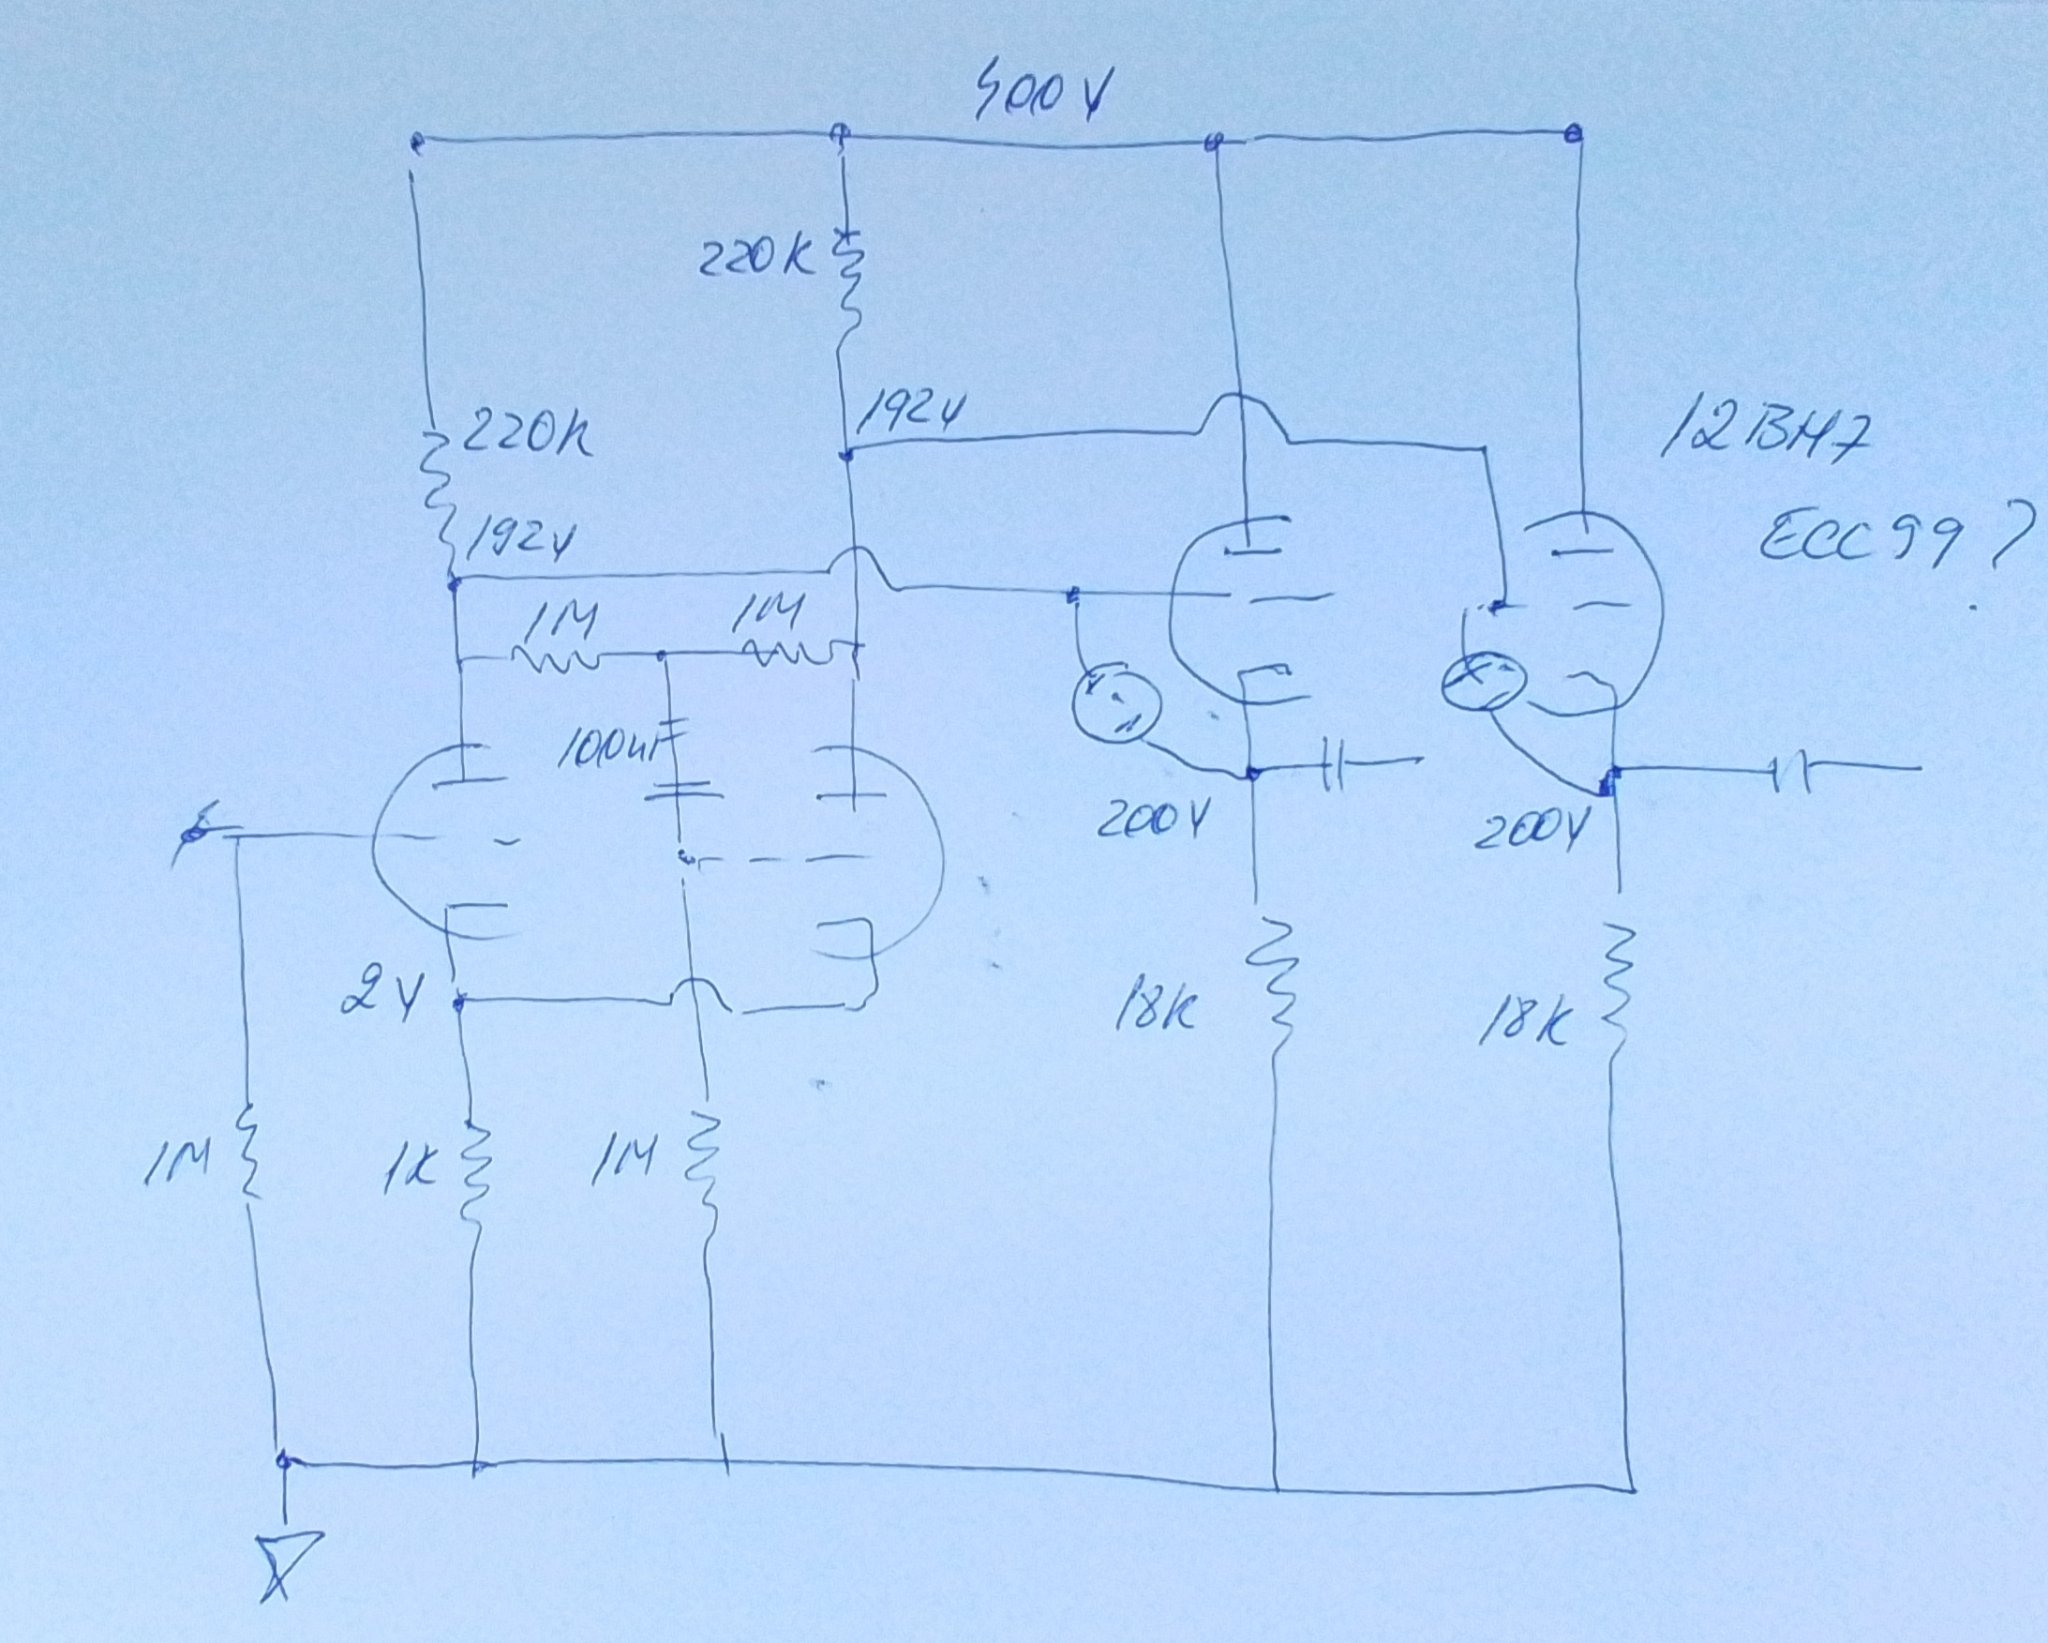 400V
220K
192V
220K
12BH7
ECC99?
192V
1M
1M
100nF
200V
200V
2V
18K
18K
1M
1K
1M